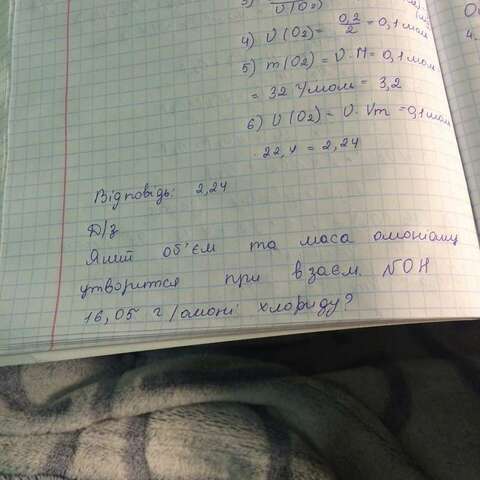 3) V(O₂)
4) V(O₂) = 0,2/2 = 0,1 мол
5) m(O₂) = V · M = 0,1 мол
= 32 г/мол = 3,2
6) V(O₂) = V · Vm = 0,1 мол
· 22,4 = 2,24
Відповідь: 2,24
Д/з
Який об'єм та маса амоніаку
утвориться при взаєм. NOH
16,05 г/амоні хлориду?